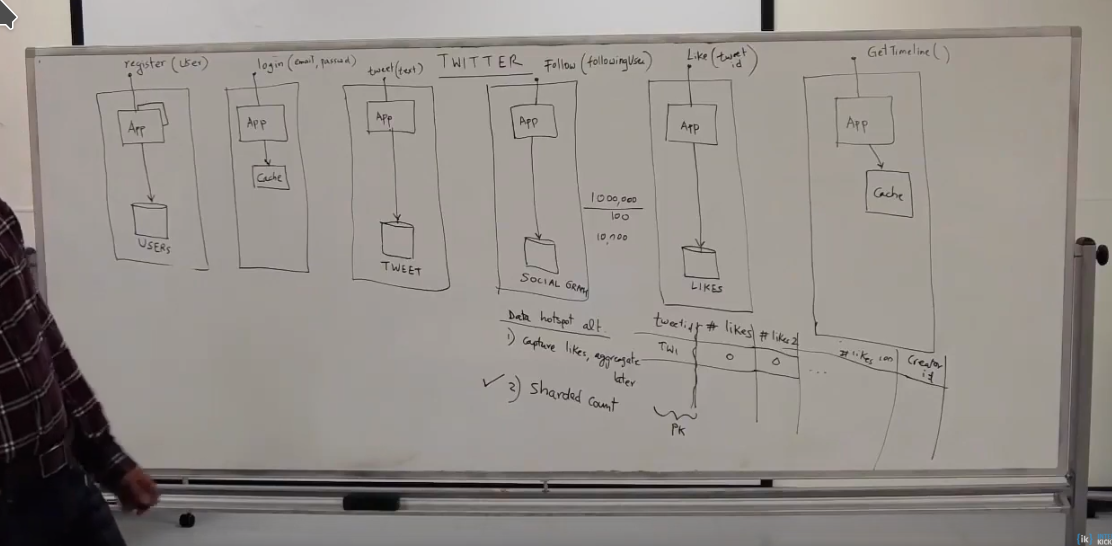 TWITTER
register (User)
App
USERS
login (email, passwd)
App
Cache
tweet (text)
App
TWEET
Follow (followingUser)
App
SOCIAL GRAPH
1000,000
100
10,000
Like (tweet
id)
App
LIKES
GetTimeline ()
App
Cache
Data hotspot alt.
1) Capture likes, aggregate
later
✓ 2) Sharded Count
tweetid # likes # likes2 # likes 100 Creator
id
TW1 0 0 ...
PK
[ik]
KICK